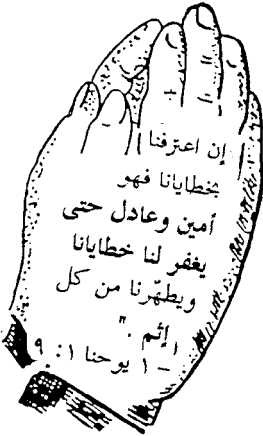 إن اعترفنا
بخطايانا فهو
أمين وعادل حتى
يغفر لنا خطايانا
ويطهّرنا من كل
إثم . "
– ١ يوحنا ١: ٩